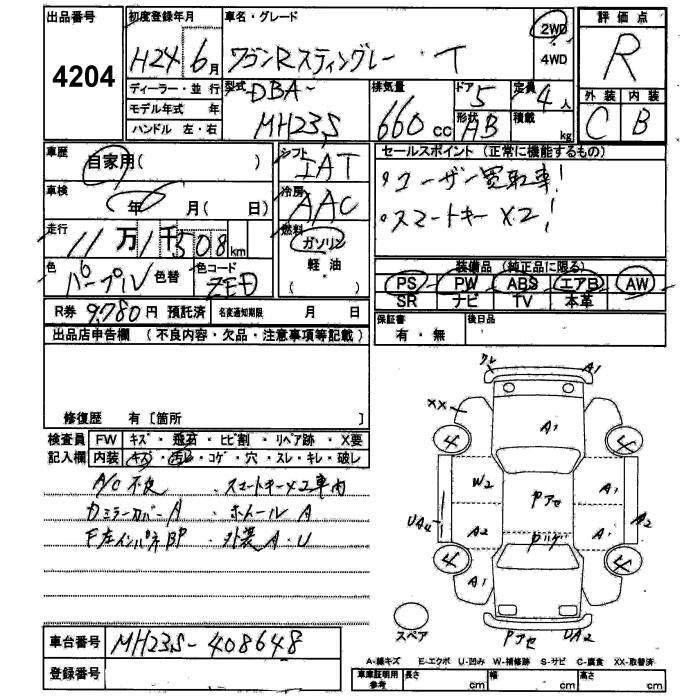 出品番号 初度登録年月 車名・グレード 評価点
4204 H24 6月 ワゴンRスティングレー・T 2WD 4WD R
ディーラー・並行 型式 DBA- 排気量 ドア 5 定員 4人 外装 内装
モデル年式 年 MH23S 660cc 形状 AB 積載 kg C B
ハンドル 左・右
車歴 自家用( ) シフト IAT セールスポイント (正常に機能するもの)
車検 年 月( 日) 冷房 AAC ・ユーザー買取車!
走行 11万1千508km 燃料 ガソリン ・スマートキー×2!
軽油 ( )
色 パープル 色替 色コード ZED 装備品 (純正品に限る)
PS PW ABS エアB AW
SR ナビ TV 本革
R券 9,780円 預託済 名変通知期限 月 日 保証書 有・無 後日品
出品店申告欄 (不良内容・欠品・注意事項等記載)
修復歴 有〔箇所 〕
検査員 FW キズ・飛石・ヒビ割・リペア跡・X要
記入欄 内装 キズ・汚れ・コゲ・穴・スレ・キレ・破レ
A/C不良 ・スマートキー×2車内
Dミラーカバー A ・ホイール A
F左インパネBP ・外装 A・U
クレ A1
XX
4 A1 4
W2 Pアセ A1
UA4 A2 A1 A2
4 A1 4
スペア Pアセ UA2
車台番号 MH23S-408648
登録番号
A-線キズ E-エクボ U-凹み W-補修跡 S-サビ C-腐食 XX-取替済
車庫証明用参考 長さ cm 幅 cm 高さ cm